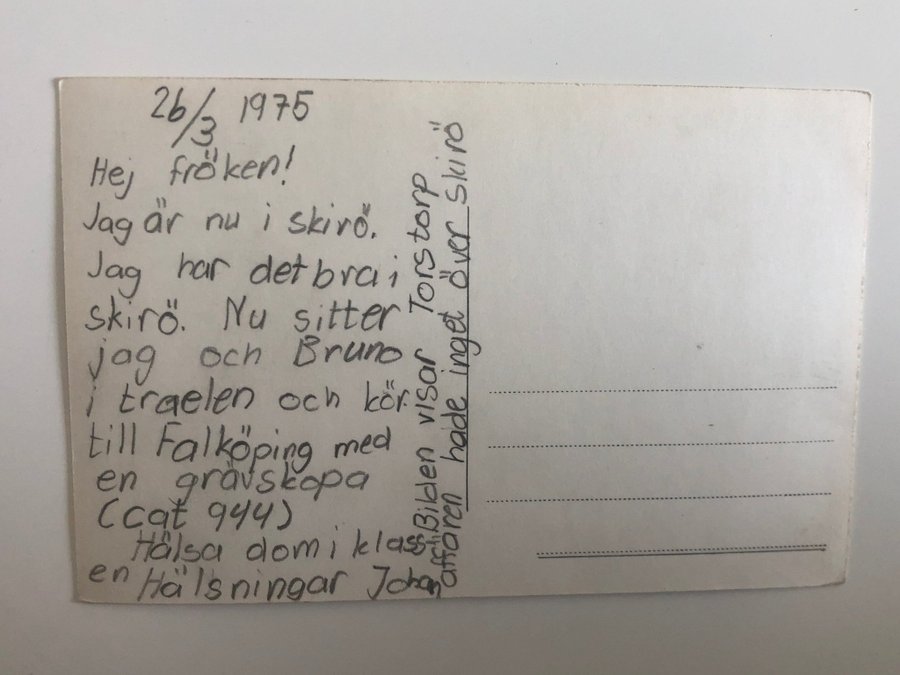 26/3 1975
Hej fröken!
Jag är nu i skirö.
Jag har det bra i
skirö. Nu sitter
jag och Bruno
i traelen och kör
till Falköping med
en grävskopa
(cat 944)
Hälsa dom i klass-
en Hälsningar Johan
Bilden visar Torstorp
affären hade inget över Skirö